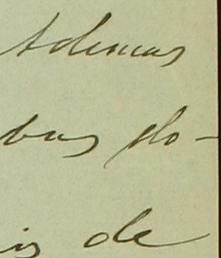 Ademas
bus do-
is de